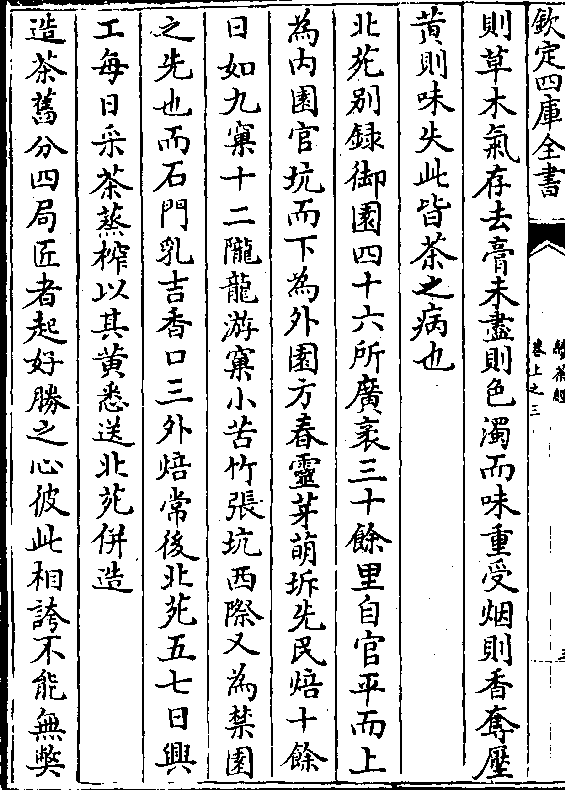 欽定四庫全書
續茶經
卷上之三
則草木氣存去膏未盡則色濁而味重受烟則香奪壓
黄則味失此皆茶之病也
北苑别録御園四十六所廣袤三十餘里自官平而上
為内園官坑而下為外園方春靈芽萌坼先民焙十餘
日如九窠十二隴龍游窠小苦竹張坑西際又為禁園
之先也而石門乳吉香口三外焙常後北苑五七日興
工每日采茶蒸榨以其黄悉送北苑併造
造茶舊分四局匠者起好勝之心彼此相誇不能無弊